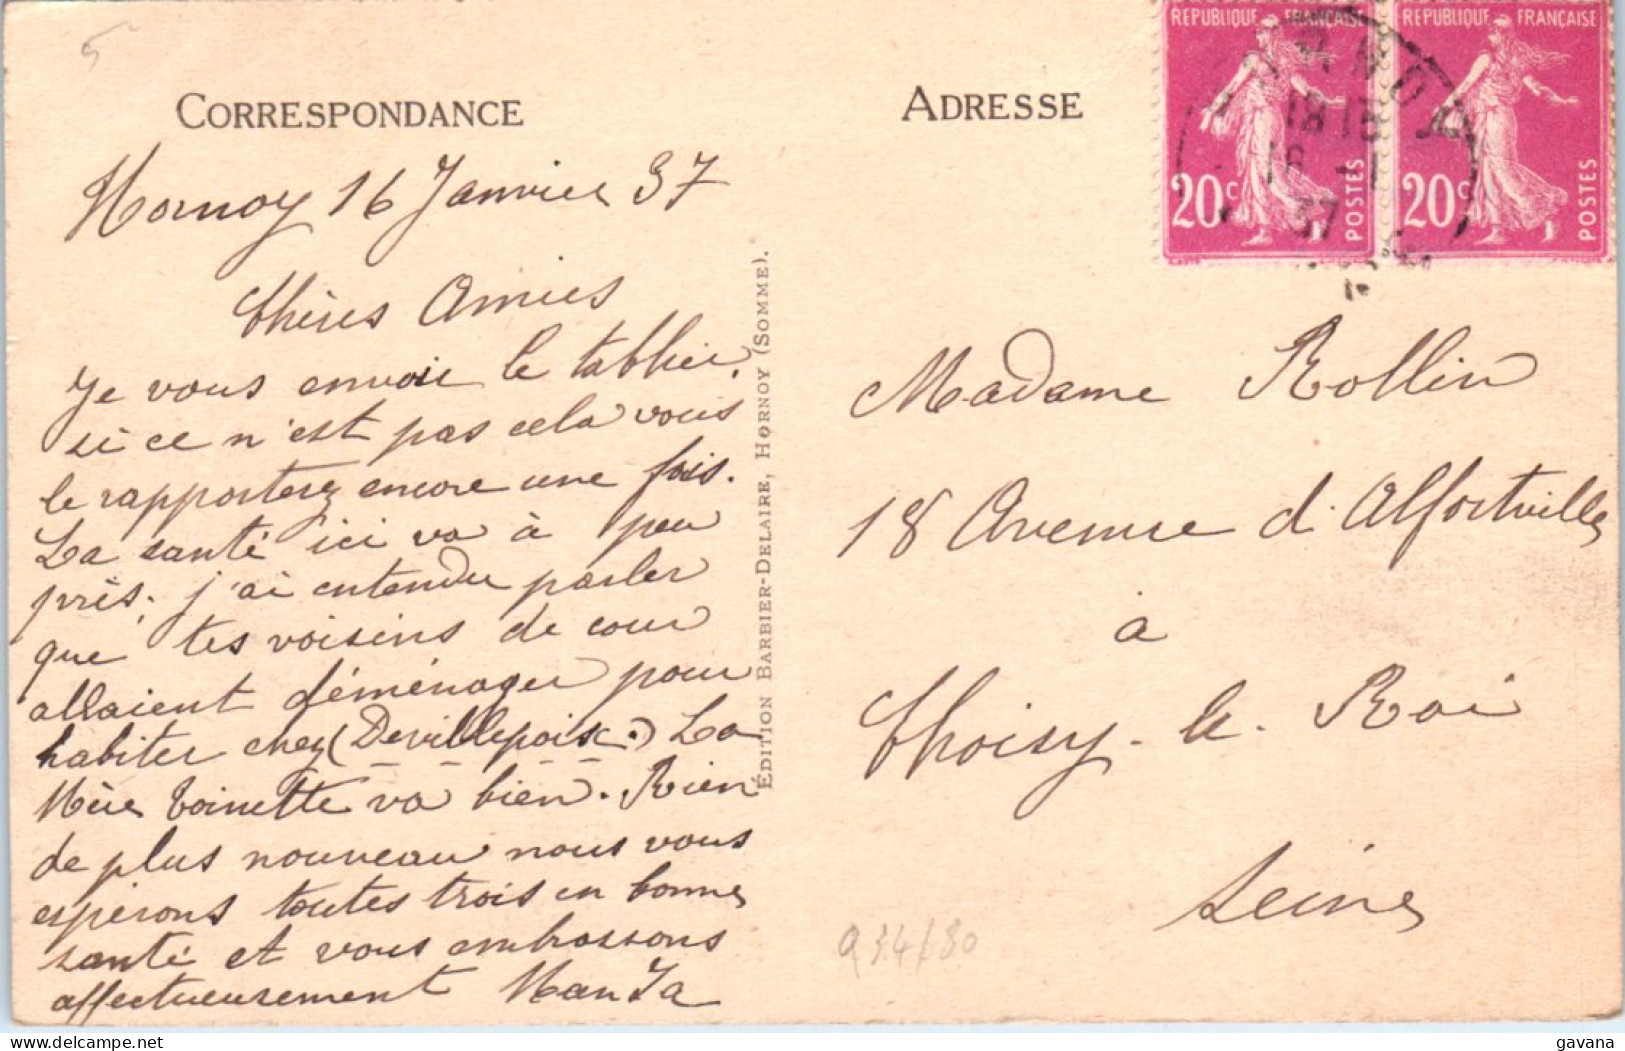 5
CORRESPONDANCE
Hornoy 16 Janvier 37
Chères Amies
Je vous envoie le tablier.
si ce n'est pas cela vous
le rapporterez encore une fois.
La santé ici va à peu
près; j'ai entendu parler
que tes voisins de cour
allaient déménager pour
habiter chez (Devillepoix.) La
Mère Toinette va bien. Rien
de plus nouveau nous vous
espérons toutes trois en bonne
santé et vous embrassons
affectueusement
ÉDITION BARBIER-DELAIRE, HORNOY (SOMME).
ADRESSE
REPUBLIQUE FRANÇAISE
20c POSTES
REPUBLIQUE FRANÇAISE
20c POSTES
HORNOY
18 15
16 -1
37
Madame Rollin
18 Avenue d'Alfortville
à
Choisy-le-Roi
Seine
934/80
gavana